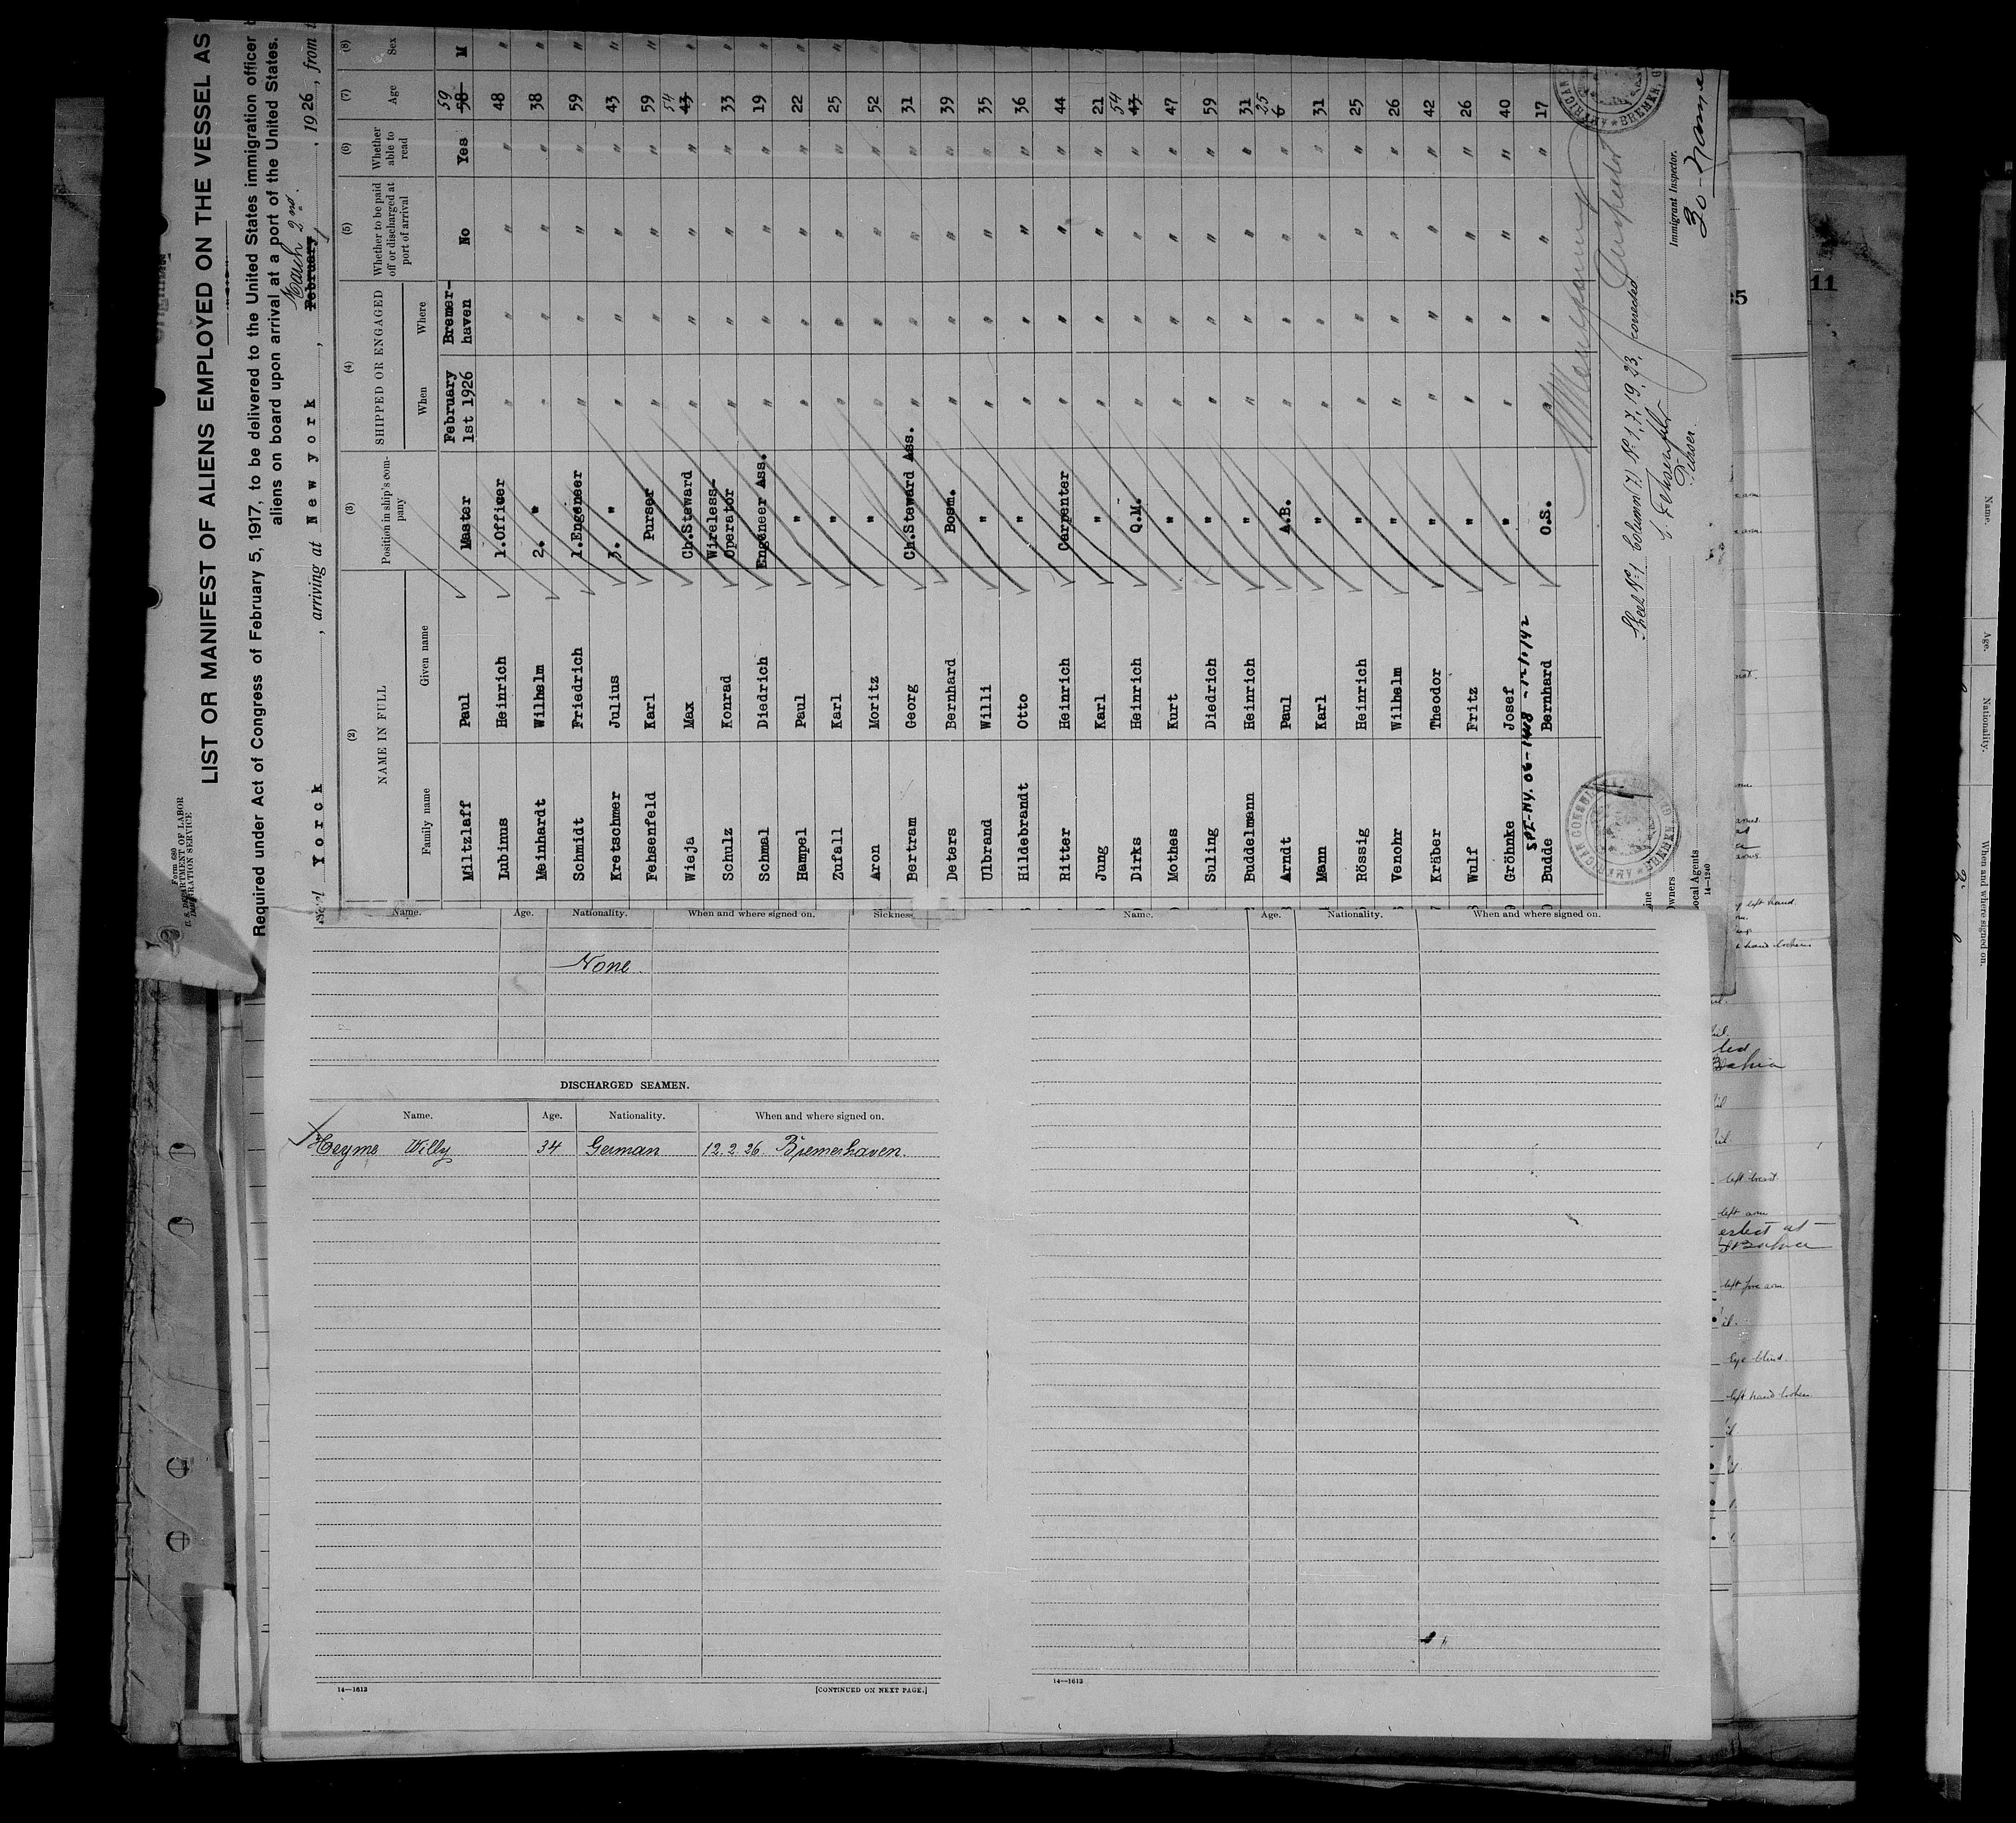 Form 680
U. S. DEPARTMENT OF LABOR
IMMIGRATION SERVICE
LIST OR MANIFEST OF ALIENS EMPLOYED ON THE VESSEL AS
Required under Act of Congress of February 5, 1917, to be delivered to the United States immigration officer
aliens on board upon arrival at a port of the United States.
Yorck, arriving at Newyork, February March 2nd, 1926, from
(2) (3) (4) (5) (6) (7) (8)
NAME IN FULL Position in ship's company SHIPPED OR ENGAGED Whether to be paid off or discharged at port of arrival Whether able to read Age Sex
Family name Given name When Where
Miltzlaff Paul Master February 1st 1926 Bremerhaven No Yes 58 59 M
Lubinus Heinrich 1.Officer " " " " 48 "
Meinhardt Wilhelm 2. " " " " " 38 "
Schmidt Friedrich 1.Engeneer " " " " 59 "
Kretschmer Julius 3. " " " " " 43 "
Fehsenfeld Karl Purser " " " " 59 "
Wieja Max Ch.Steward " " " " 43 54 "
Schulz Konrad Wireless-Operator " " " " 33 "
Schmal Diedrich Engeneer Ass. " " " " 19 "
Hampel Paul " " " " " 22 "
Zufall Karl " " " " " 25 "
Aron Moritz " " " " " 52 "
Bertram Georg Ch.Steward Ass. " " " " 31 "
Deters Bernhard Bosm. " " " " 39 "
Ulbrand Willi " " " " " 35 "
Hildebrandt Otto " " " " " 36 "
Ritter Heinrich Carpenter " " " " 44 "
Jung Karl " " " " " 21 "
Dirks Heinrich Q.M. " " " " 43 54
Mothes Kurt " " " " " 47
Suling Diedrich " " " " " 59
Buddelmann Heinrich " " " " " 31
Arndt Paul A.B. " " " " 6 25
Mann Karl " " " " " 31
Rössig Heinrich " " " " " 25
Venohr Wilhelm " " " " " 26
Kräber Theodor " " " " " 42
Wulf Fritz " " " " " 26
Gröhnke Josef " " " " " 40
Budde Bernhard O.S. " " " " 17
Sheet No 1 Column 7) No 1, 7, 19, 23, corrected
Fehsenfeld
Purser.
Inspector
Immigrant Inspector.
30 - Name
14-1240
Name. Age. Nationality. When and where signed on. Sickness
None.
DISCHARGED SEAMEN.
Name. Age. Nationality. When and where signed on.
Heyme Willy 34 German 12. 2. 26. Bremerhaven.
14—1613
[CONTINUED ON NEXT PAGE.]
Name. Age. Nationality. When and where signed on.
14—1613
11
left hand
Bahia
left breast
left arm
left fore arm
Eye blind.
left hand broken
Name. Age. Nationality. When and where signed on.